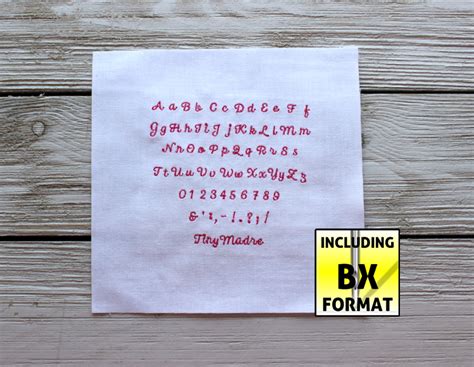 A a B b C c D d E e F f
G g H h I i J j K k L l M m
N n O o P p Q q R r S s
T t U u V v W w X x Y y Z z
0 1 2 3 4 5 6 7 8 9
& ' : , - ! . ? ; /
Tiny Madre
INCLUDING
BX
FORMAT